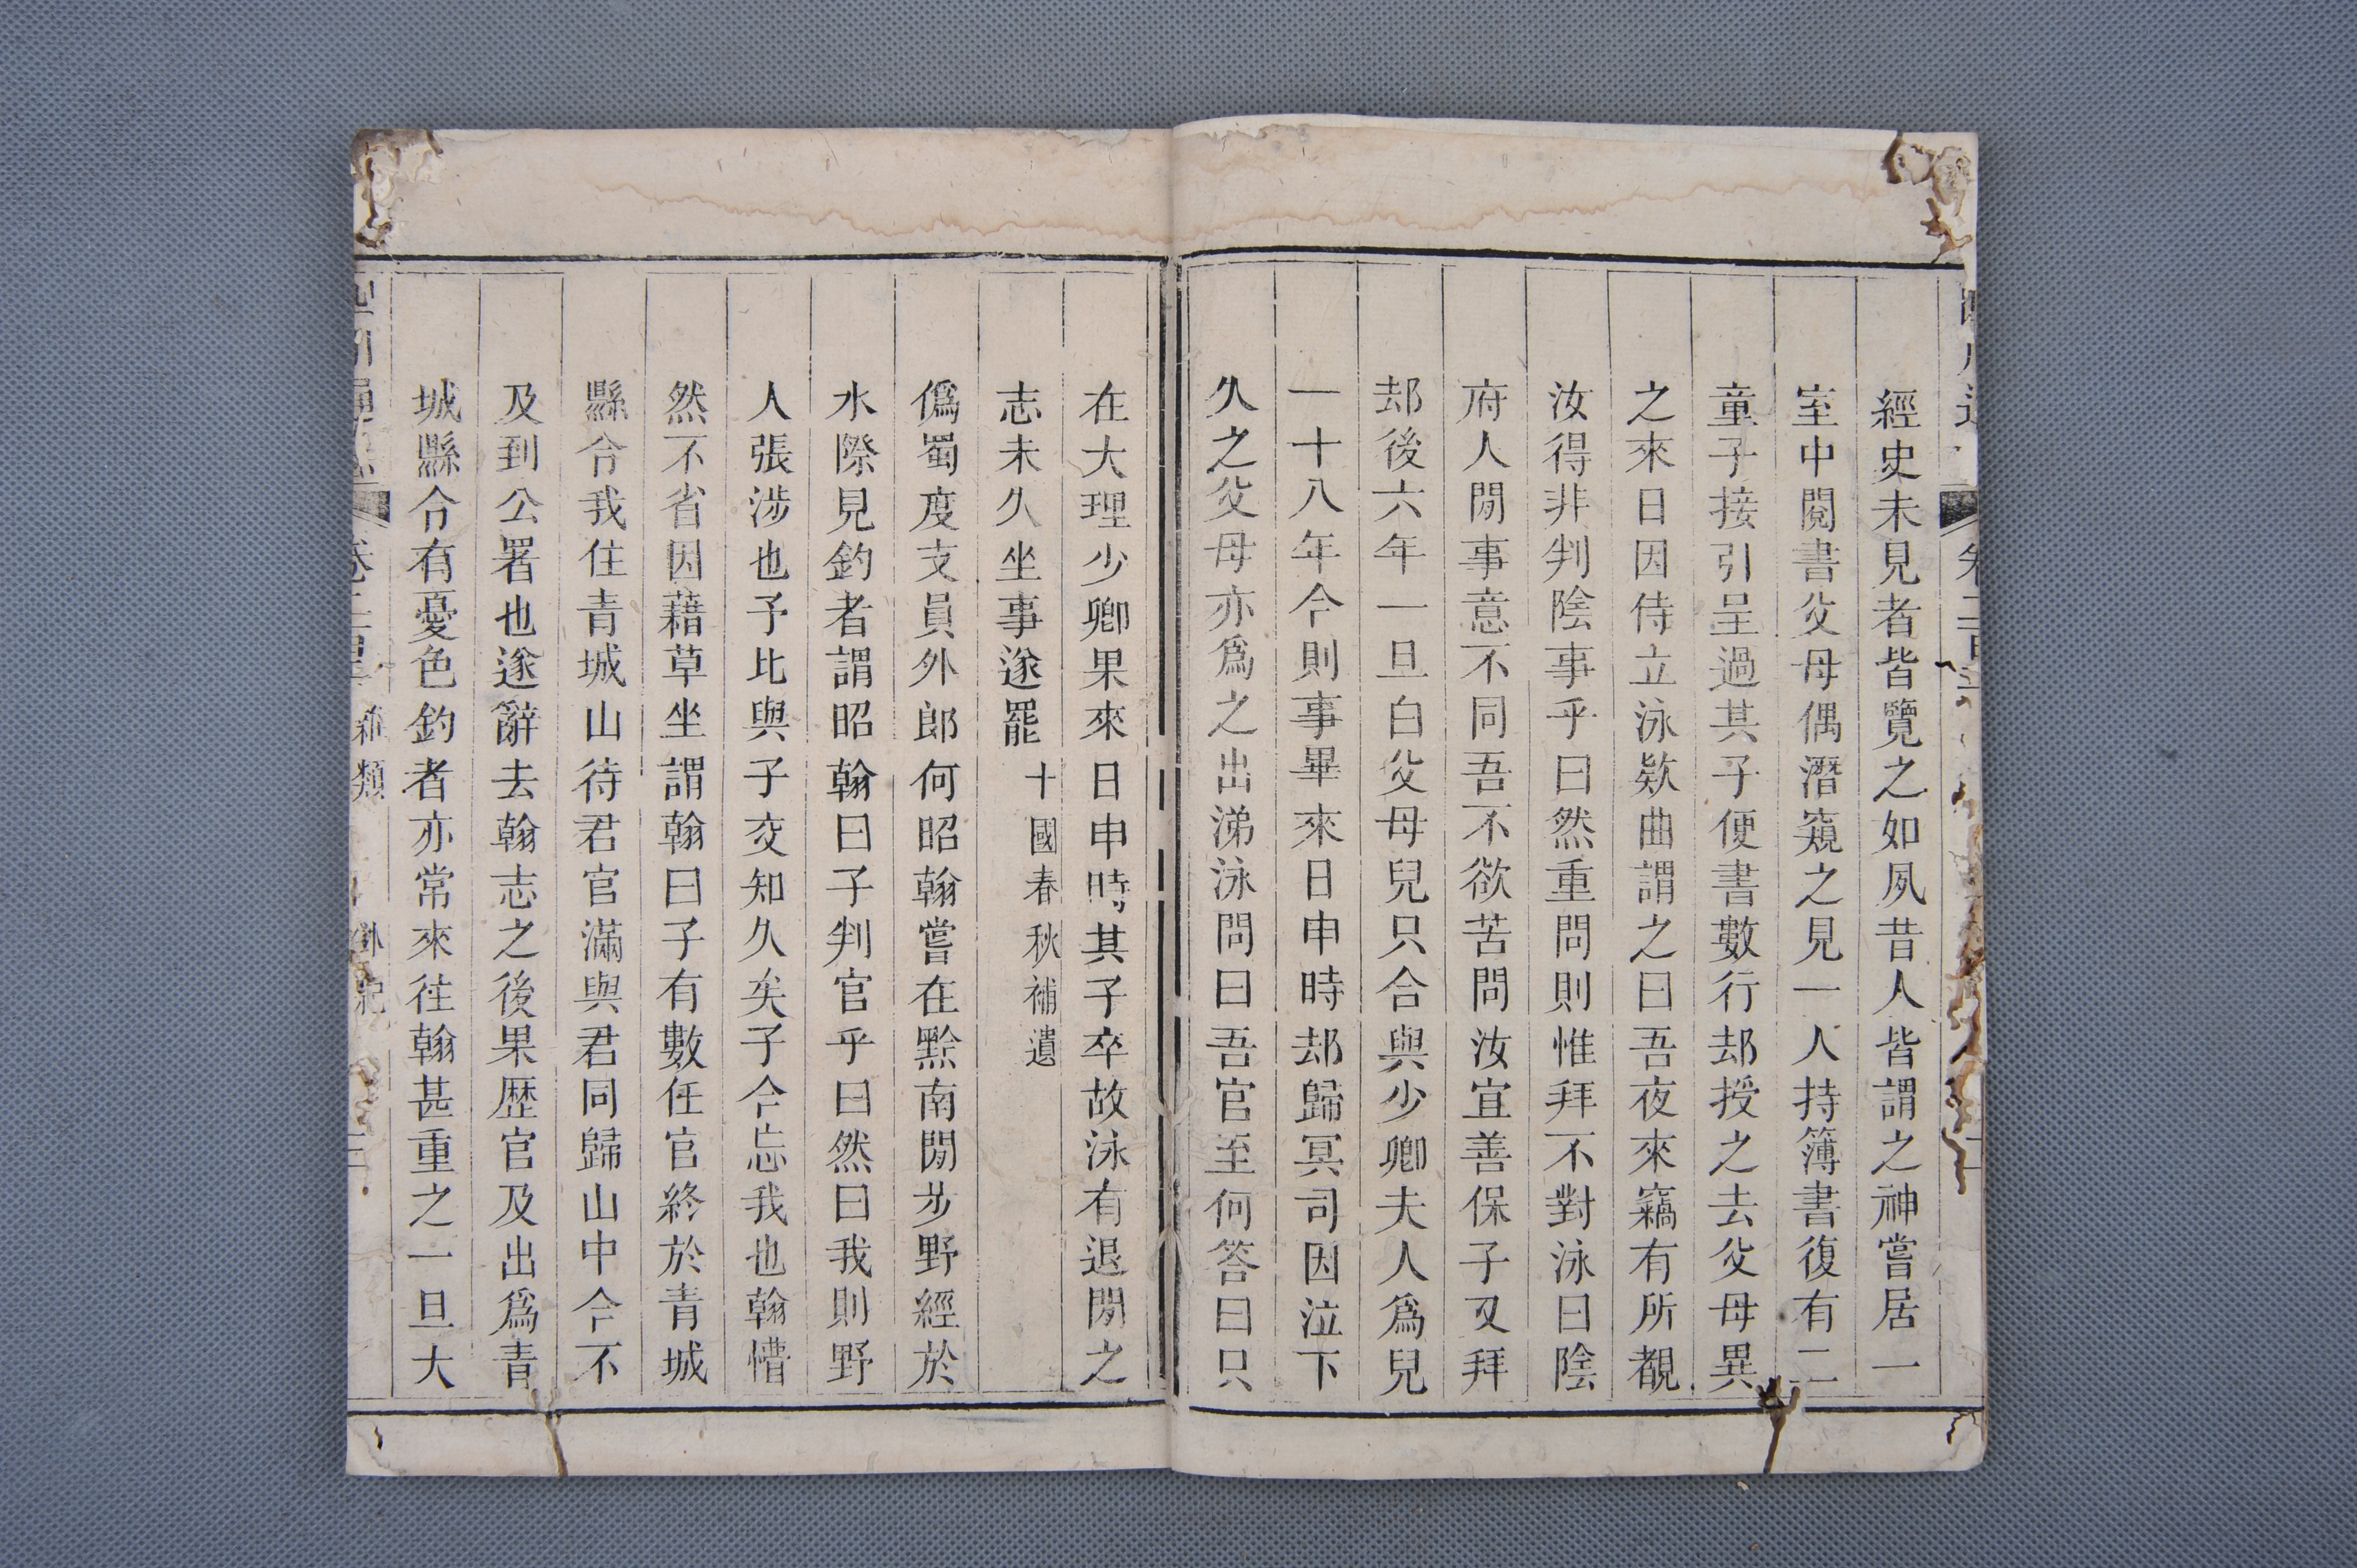 經史未見者皆覽之如夙昔人皆謂之神嘗居一
室中閱書父母偶潛窺之見一人持簿書復有二
童子接引呈過其子便書數行却授之去父母異
之來日因侍立泳欵曲謂之曰吾夜來竊有所覩
汝得非判陰事乎曰然重問則惟拜不對泳曰陰
府人間事意不同吾不欲苦問汝宜善保子又拜
却後六年一旦白父母兒只合與少卿夫人爲兒
一十八年今則事畢來日申時却歸冥司因泣下
久之父母亦爲之出涕泳問曰吾官至何答曰只
在大理少卿果來日申時其子卒故泳有退閒之
志未久坐事遂罷十國春秋補遺
僞蜀度支員外郎何昭翰嘗在黔南閒步野經於
水際見釣者謂昭翰曰子判官乎曰然曰我則野
人張涉也予比與子交知久矣子今忘我也翰懵
然不省因藉草坐謂翰曰子有數任官終於青城
縣令我住青城山待君官滿與君同歸山中今不
及到公署也遂辭去翰志之後果歴官及出爲青
城縣令有憂色釣者亦常來往翰甚重之一旦大
類